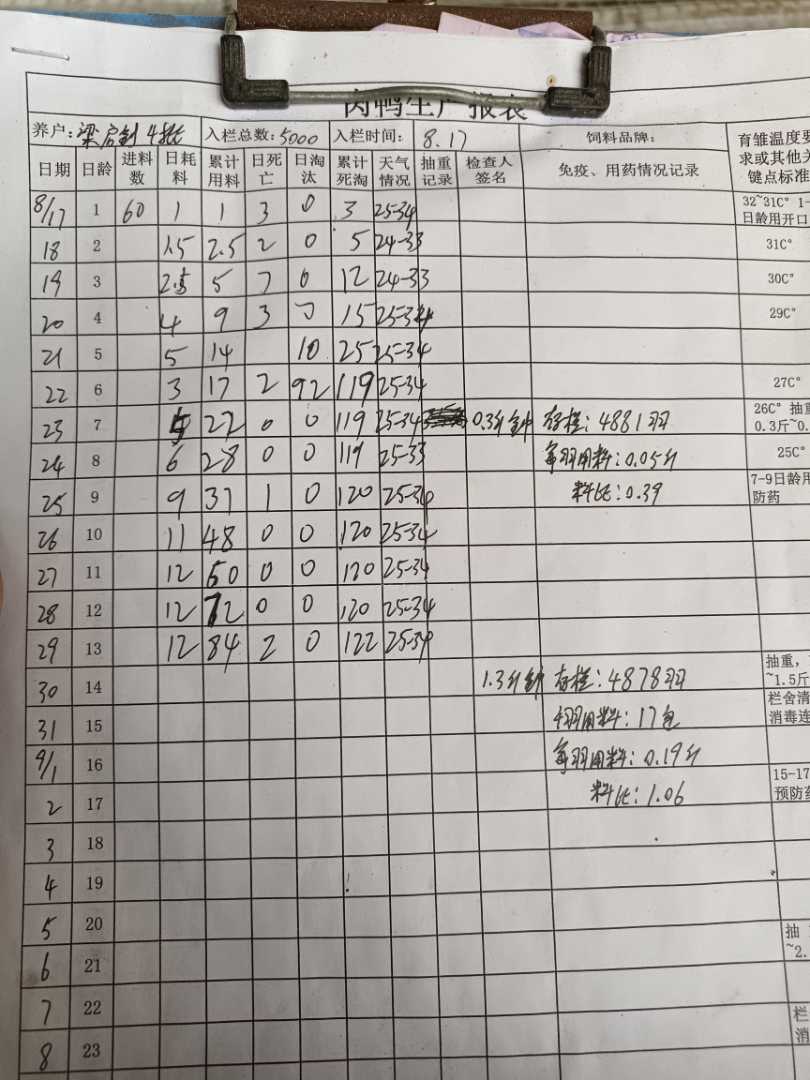 肉鸭生产报表
养户: 梁启剑 4批 入栏总数: 5000 入栏时间: 8.17 饲料品牌: 育雏温度要求或其他关键点标准
日期 日龄 进料数 日耗料 累计用料 日死亡 日淘汰 累计死淘 天气情况 抽重记录 检查人签名 免疫、用药情况记录
8/17 1 60 1 1 3 0 3 25-34 32~31C° 1- 日龄用开口
18 2 1.5 2.5 2 0 5 24-33 31C°
19 3 2.5 5 7 0 12 24-33 30C°
20 4 4 9 3 0 15 25-34 29C°
21 5 5 14 10 25 25-34
22 6 3 17 2 92 119 25-34 27C°
23 7 5 22 0 0 119 25-34 0.3斤 存栏: 4881羽 26C° 抽重 0.3斤~0.
24 8 6 28 0 0 119 25-33 每羽用料: 0.05斤 25C°
25 9 9 37 1 0 120 25-34 料比: 0.39 7-9日龄用 防药
26 10 11 48 0 0 120 25-34
27 11 12 60 0 0 120 25-34
28 12 12 72 0 0 120 25-34
29 13 12 84 2 0 122 25-34
30 14 1.3斤 存栏: 4878羽 抽重, ~1.5斤
31 15 用料: 17包 栏舍清 消毒连
9/1 16 每羽用料: 0.19斤
2 17 料比: 1.06 15-17 预防药
3 18
4 19
5 20 抽 ~2.
6 21
7 22 栏 消
8 23